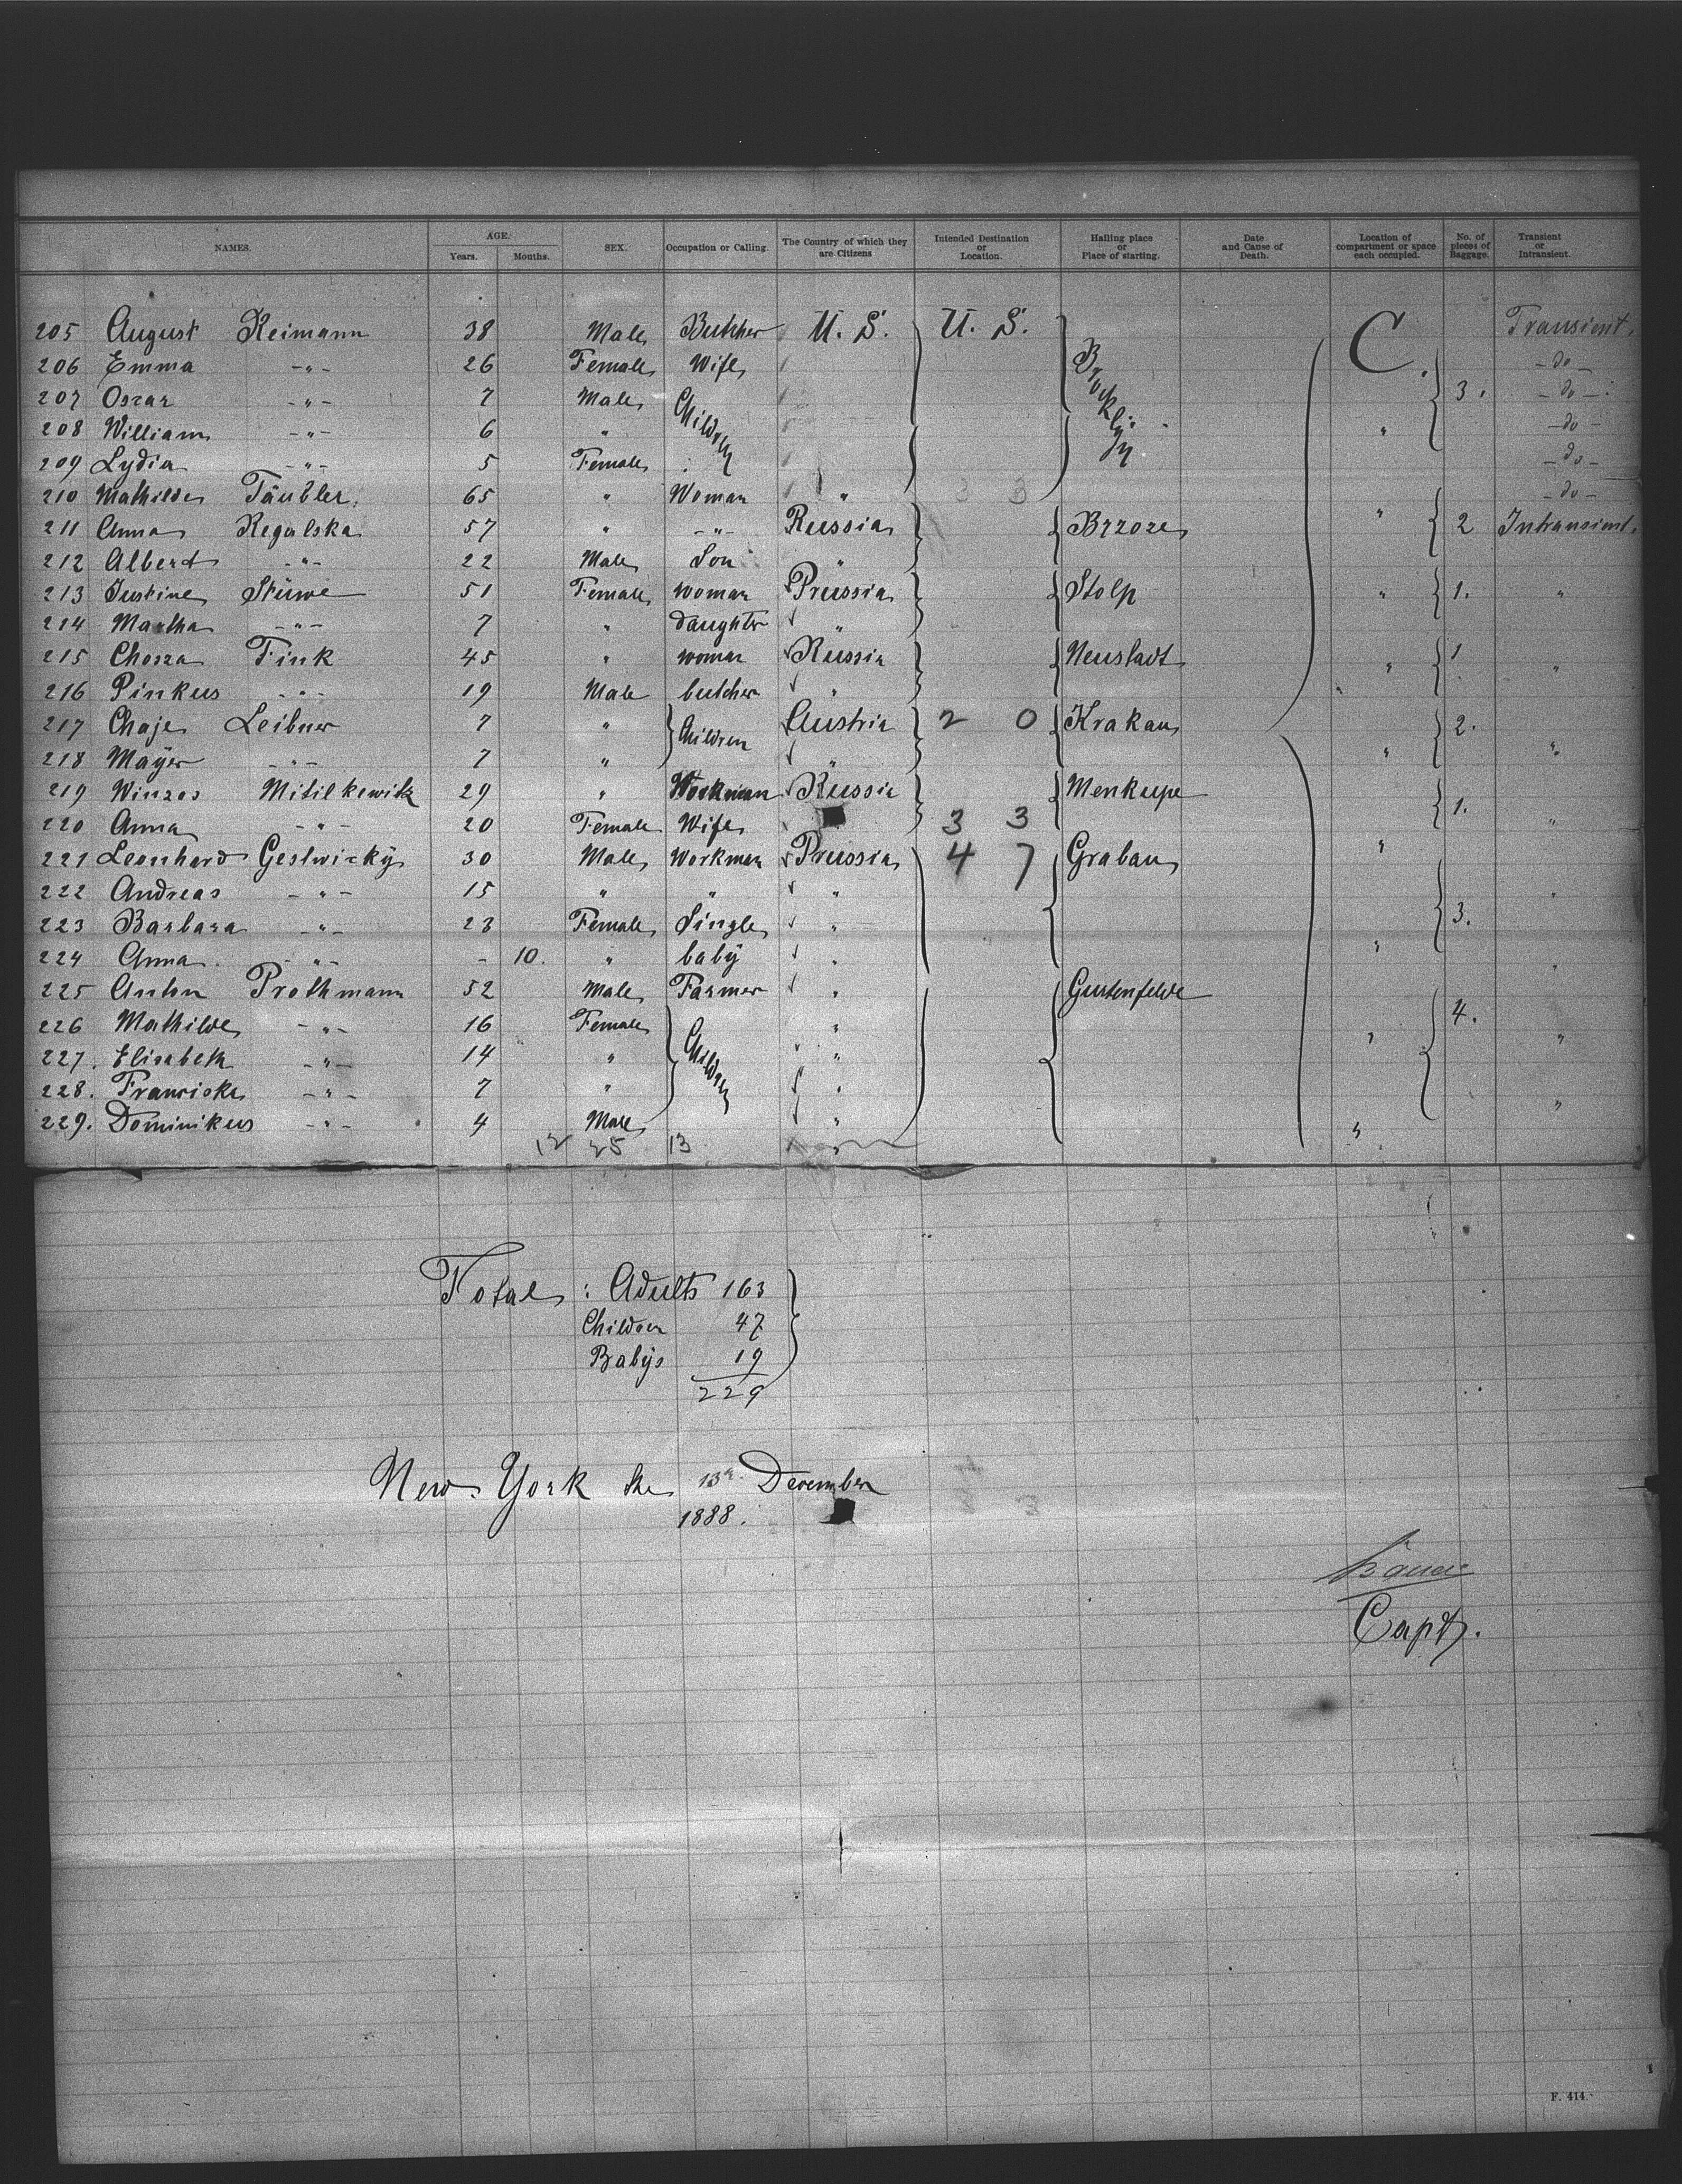 NAMES. AGE. Years. Months. SEX. Occupation or Calling. The Country of which they are Citizens Intended Destination or Location. Hailing place or Place of starting. Date and Cause of Death. Location of compartment or space each occupied. No. of pieces of Baggage. Transient or Intransient.
205 August Reimann 38 Male Butcher U. S. U. S. Brooklyn C. Transient.
206 Emma -"- 26 Female Wife -do-
207 Oscar -"- 7 Male Children 3. -do-
208 William -"- 6 " " -do-
209 Lydia -"- 5 Female -do-
210 Mathilde Täubler 65 " Woman " 3 3 -do-
211 Anna Regalska 57 " -"- Russia Brzoze " 2 Intransient.
212 Albert -"- 22 Male Son "
213 Justine Stüwe 51 Female woman Prussia Stolp " 1. "
214 Martha -"- 7 " daughter "
215 Chosza Fink 45 " woman Russia Neustadt " 1 "
216 Pinkus -"- 19 Male butcher " "
217 Chaje Leibner 7 " Children Austria 2 0 Krakau 2.
218 Mayer -"- 7 " " " "
219 Winzos Mitilkewitz 29 " Workman Russia Menkupe 1.
220 Anna -"- 20 Female Wife 3 3 "
221 Leonhard Gestwicky 30 Male Workman Prussia 4 7 Grabau "
222 Andreas -"- 15 " " " "
223 Barbara -"- 23 Female Single " 3.
224 Anna -"- - 10. " baby " " "
225 Anton Prothmann 52 Male Farmer " Gustenfelde
226 Mathilde -"- 16 Female Children " 4.
227. Elisabeth -"- 14 " " " "
228. Franciska -"- 7 " "
229. Dominikus -"- 4 Male " " "
12 25 13 "
Total : Adults 163
Children 47
Babys 19
229
New York the 13th December
1888.
Capt.
F. 414.